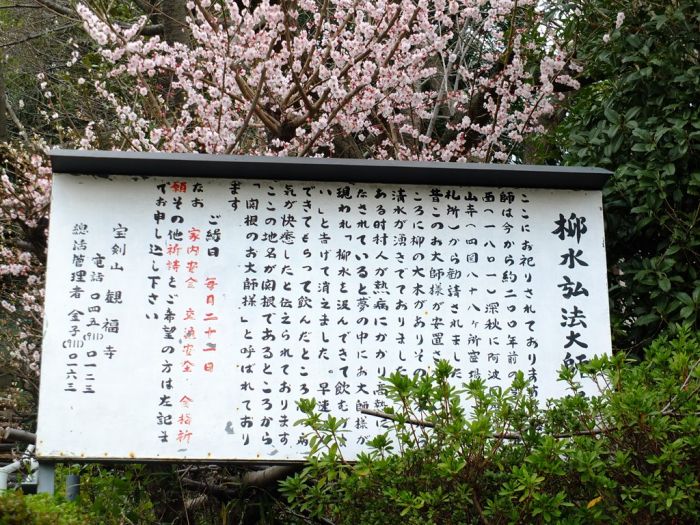 柳水弘法大師
ここにお祀りされておりま
師は今から約二〇〇年前の
酉(一八〇一)深秋に阿波
山寺(四国八十八ヶ所霊場
札所)から勧請されました
昔このお大師様が安置さ
ころに柳の大木がありその
清水が湧きでておりました
ある時村人が熱病にかかり高熱に
たされていると夢の中にお大師様が
現われ「柳水を汲んできて飲むがよ
い」と告げて消えました。早速
できてもらって飲んだところ 病
気が快癒したと伝えられております
ここの地名が関根であるところから
「関根のお大師様」と呼ばれており
ます
ご縁日 毎月二十一日
なお 家内安全 交通安全 合格祈
願その他祈祷をご希望の方は左記ま
でお申し込し下さい
宝剣山 観福寺
電話〇四五(911)〇一二三
總括管理者 金子(911)〇六三